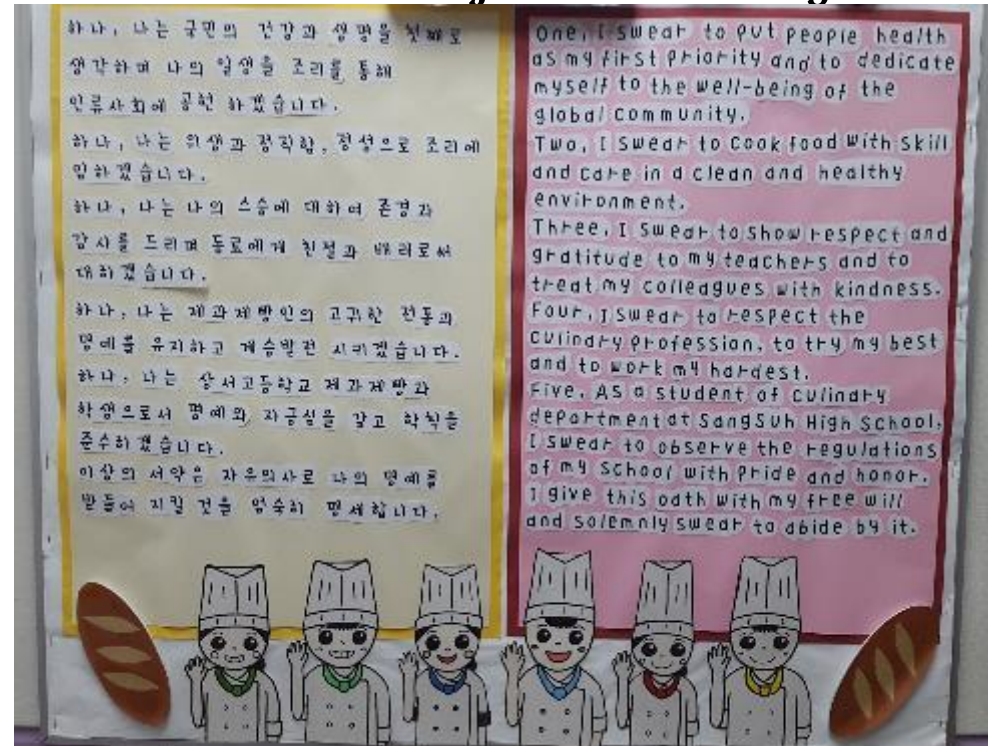 하나, 나는 국민의 건강과 생명을 첫째로
생각하며 나의 일생을 조리를 통해
인류사회에 공헌 하겠습니다.
하나, 나는 위생과 정확함, 정성으로 조리에
임하겠습니다.
하나, 나는 나의 스승에 대하여 존경과
감사를 드리며 동료에게 친절과 배려로써
대하겠습니다.
하나, 나는 제과제빵인의 고귀한 전통과
명예를 유지하고 계승발전 시키겠습니다.
하나, 나는 상서고등학교 제과제빵과
학생으로서 명예와 자긍심을 갖고 학칙을
준수하겠습니다.
이상의 서약은 자유의사로 나의 명예를
받들어 지킬 것을 엄숙히 맹세합니다.
One, I swear to put people health
as my first priority and to dedicate
myself to the well-being of the
global community.
Two, I swear to cook food with skill
and care in a clean and healthy
environment.
Three, I swear to show respect and
gratitude to my teachers and to
treat my colleagues with kindness.
Four, I swear to respect the
culinary profession, to try my best
and to work my hardest.
Five, As a student of culinary
department at SangSuh High School,
I swear to observe the regulations
of my school with pride and honor.
I give this oath with my free will
and solemnly swear to abide by it.